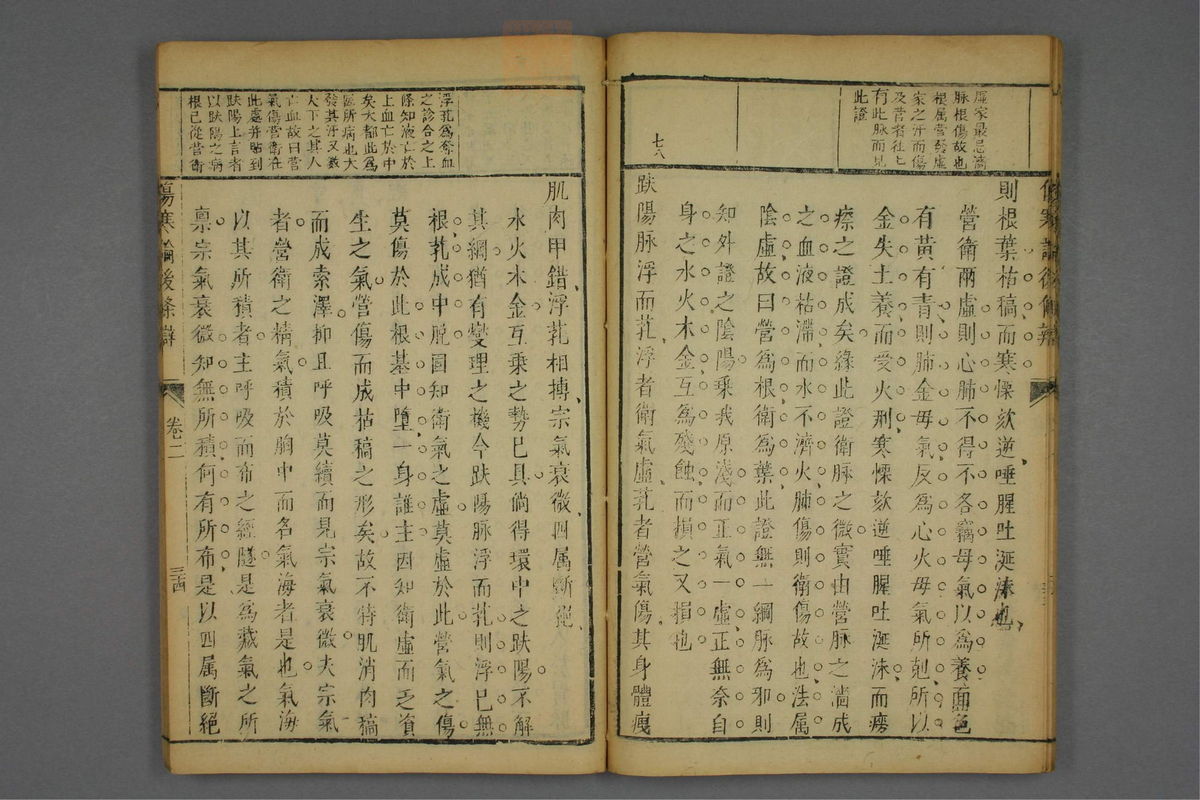 傷寒論後條辯
虛家最忌濇
脉根傷故也
根屬營發虛
家之汗而傷
及營者往匕
有此脉而見
此證
七八
則根葉枯稿而寒慄欬逆唾腥吐涎沫也
營衛兩虛則心肺不得不各竊母氣以為養面色
有黃有青則肺金母氣反為心火母氣所尅所以
金失土養而受火刑寒慄欬逆唾腥吐涎沫而瘮
瘵之證成矣緣此證衛脉之微實由營脉之濇成
之血液枯滯而水不濟火肺傷則衛傷故也法屬
陰虛故曰營為根衛為葉此證無一綱脉為邪則
知外證之陰陽乘我原淺而正氣一虛正無奈自
身之水火木金互為殘蝕而損之又損也
趺陽脉浮而芤浮者衛氣虛芤者營氣傷其身體瘦
浮芤為奪血
之診合之上
條知液亡於
上血亡於中
矣大都此為
區所病也大
發其汗又數
大下之其人
亡血故曰營
氣傷營衛在
此處并貼到
趺陽上言者
以趺陽之病
根已從營衛
肌肉甲錯浮芤相摶宗氣衰微四属斷絕
水火木金互乘之勢已具倘得環中之趺陽不解
其綱猶有變理之機今趺陽脉浮而芤則浮已無
根芤成中脫固知衛氣之虛莫虛於此營氣之傷
莫傷於此根基中墮一身誰主因知衛虛而乏資
生之氣營傷而成枯稿之形矣故不特肌消肉稿
而成索澤抑且呼吸莫續而見宗氣衰微夫宗氣
者營衛之精氣積於胸中而名氣海者是也氣海
以其所積者主呼吸而布之經隧是為藏氣之所
禀宗氣衰微知無所積何有所布是以四属斷絕
傷寒論後條辯
卷二
三四